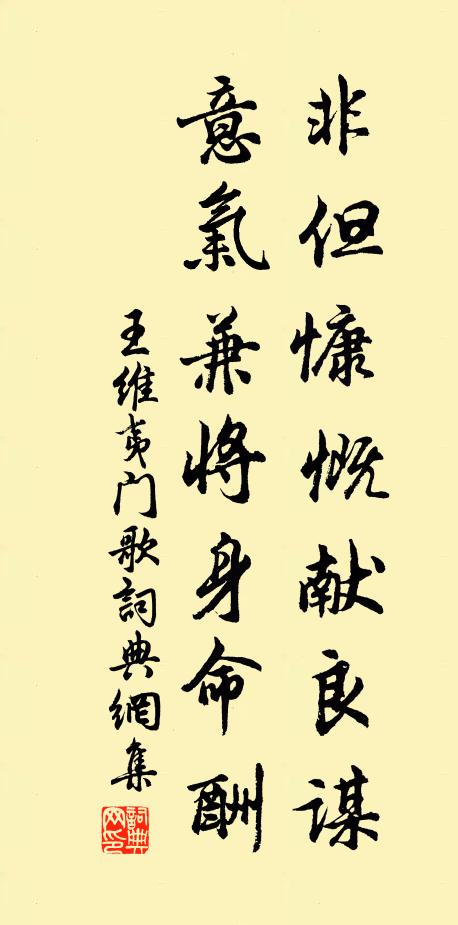 非但慷慨献良謀
意氣兼將身命酬
王維夷門歌詞典網集
詞典网印